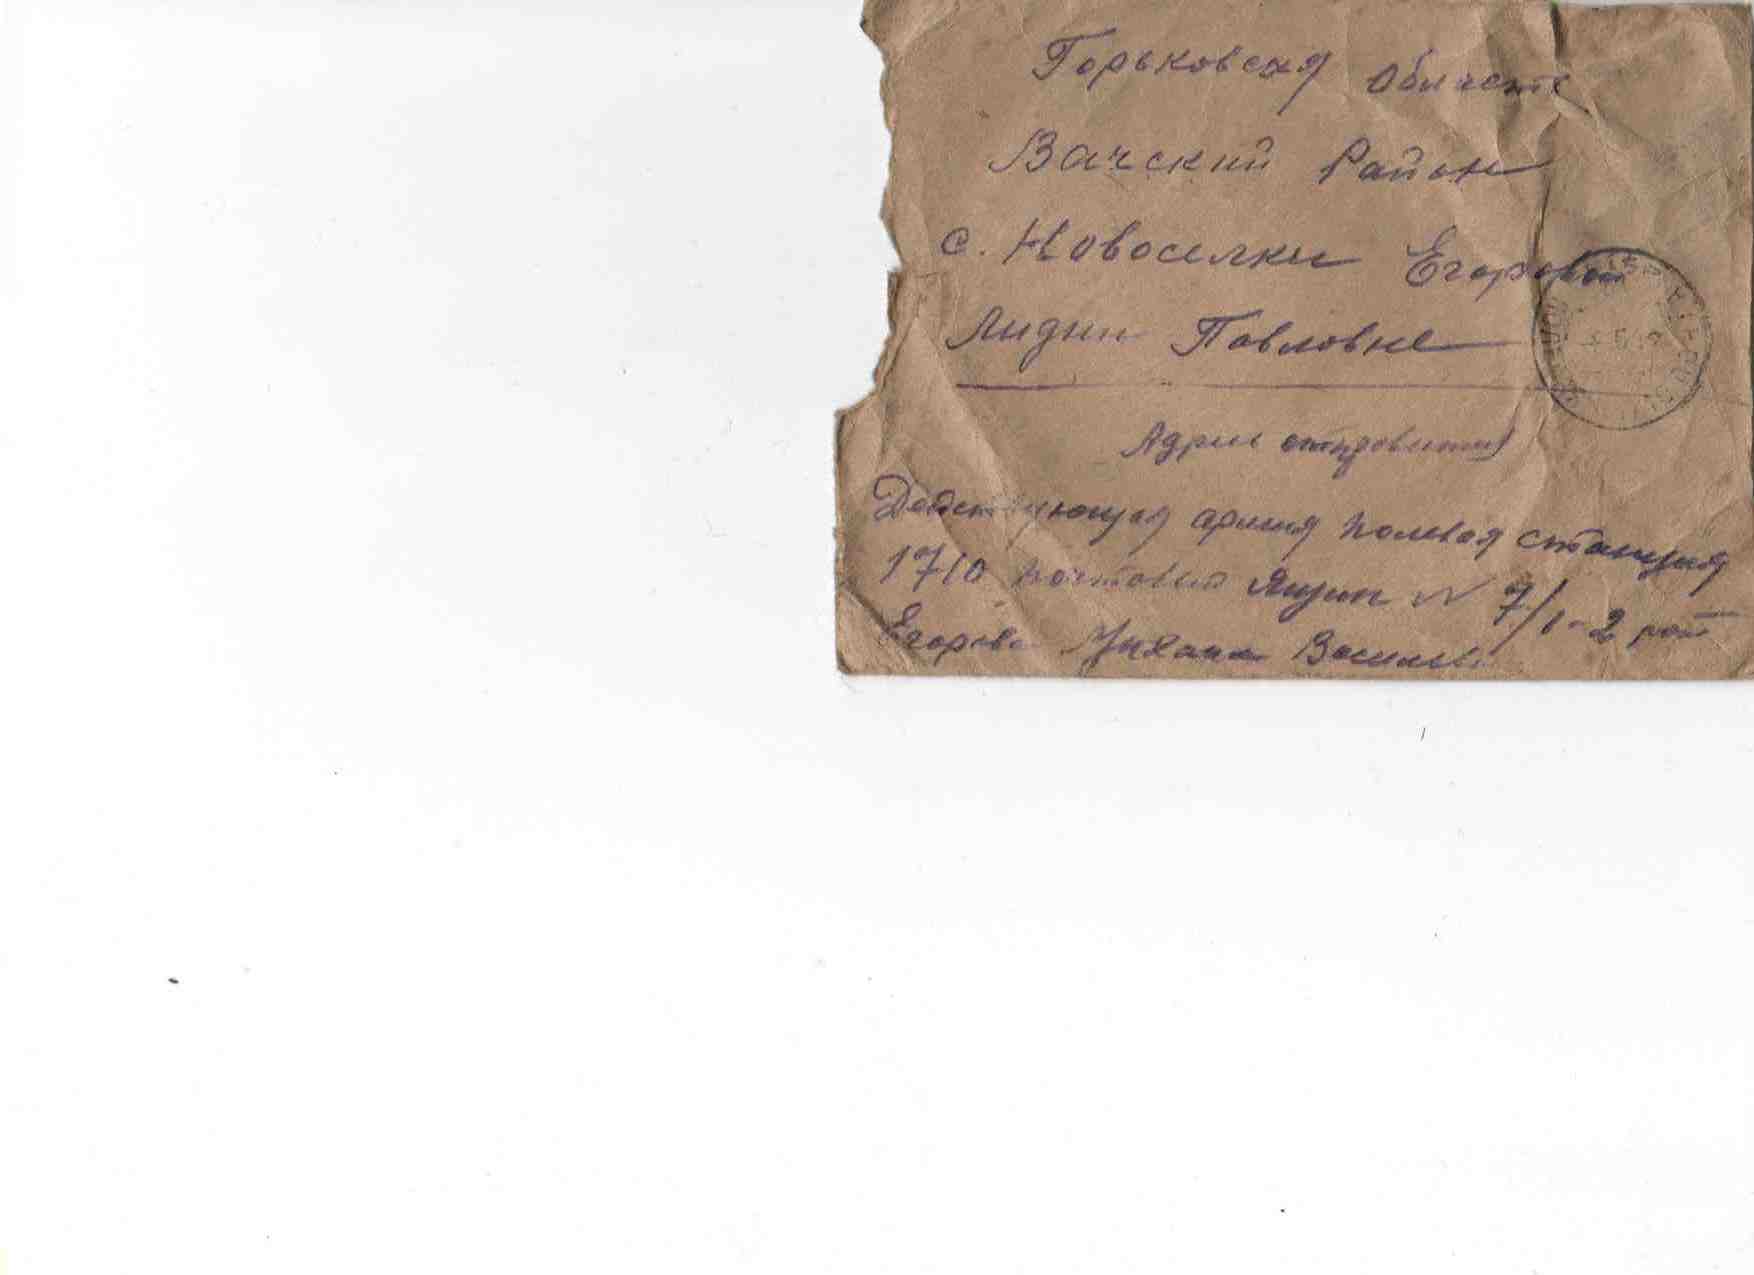 Горьковская Область
Вачский Район
с. Новоселки Егоровой
Лидии Павловне
Адрес отправителя
Действующая армия полевая станция
1710 почтовый Ящик N 7/1-2 рот
Егорова Михаила